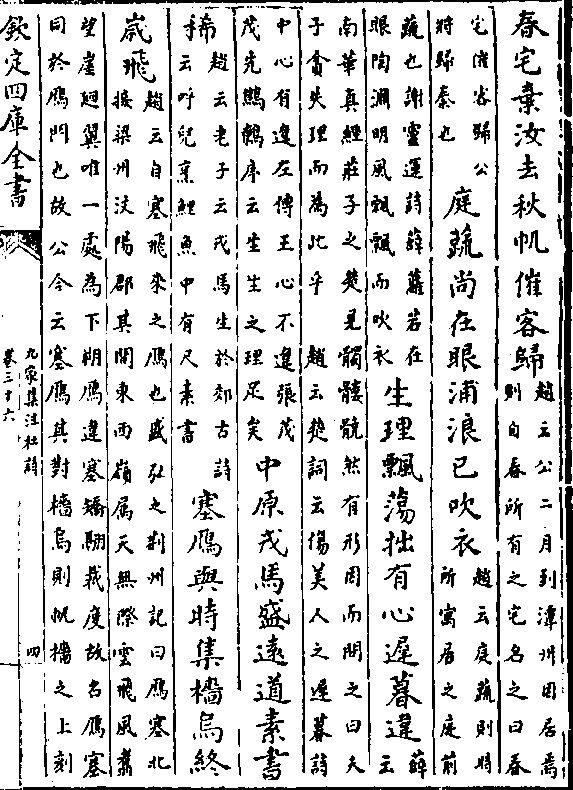 春宅棄汝去秋帆催客歸趙云公二月到潭州因居焉
則自春所有之宅名之曰春
宅催客歸公
將歸秦也
庭蔬尚在眼浦浪已吹衣趙云庭蔬則時
所寓居之庭前
蔬也謝靈運詩薜蘿若在
眼陶淵明風飄飄而吹衣
生理飄蕩拙有心遲暮違薛
云
南華真經莊子之楚見髑髏髐然有形因而問之曰夫
子貪失理而為此乎 趙云楚詞云傷美人之遲暮詩
中心有違左傳王心不違張茂
茂先鷦鷯序云生生之理足矣
中原戎馬盛遠道素書
稀趙云老子云戎馬生於郊古詩
云呼兒烹鯉魚中有尺素書
塞鴈與時集檣烏終
歲飛趙云自塞飛來之鴈也盛弘之荆州記曰鴈塞北
接梁州汶陽郡其間東西嶺屬天無際雲飛風翥
望崖廻翼唯一處為下朔鴈違塞矯翮裁度故名鴈塞
同於鴈門也故公今云塞鴈其對檣烏則帆檣之上刻
欽定四庫全書
九家集注杜詩
卷三十六
四